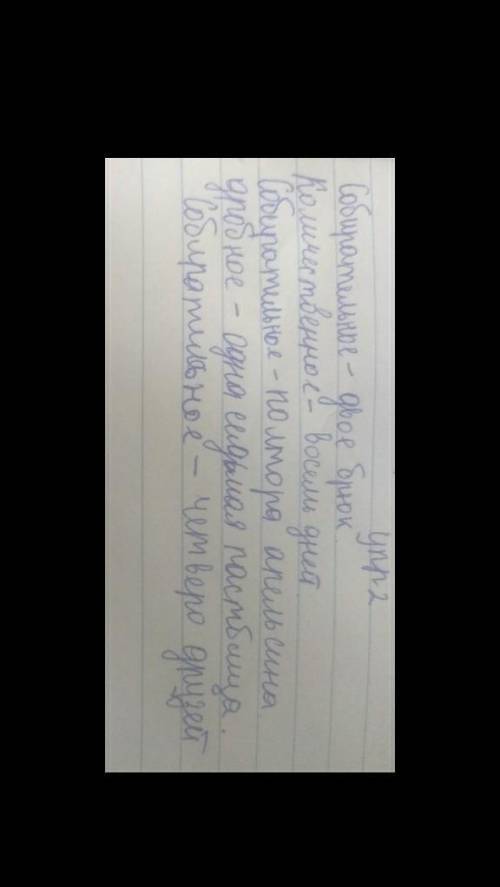 упр2
Собирательное - двое брюк.
Количественное - восемь дней.
Собирательное - полтора апельсина.
дробное - одна седьмая пастбища.
Собирательное - четверо друзей